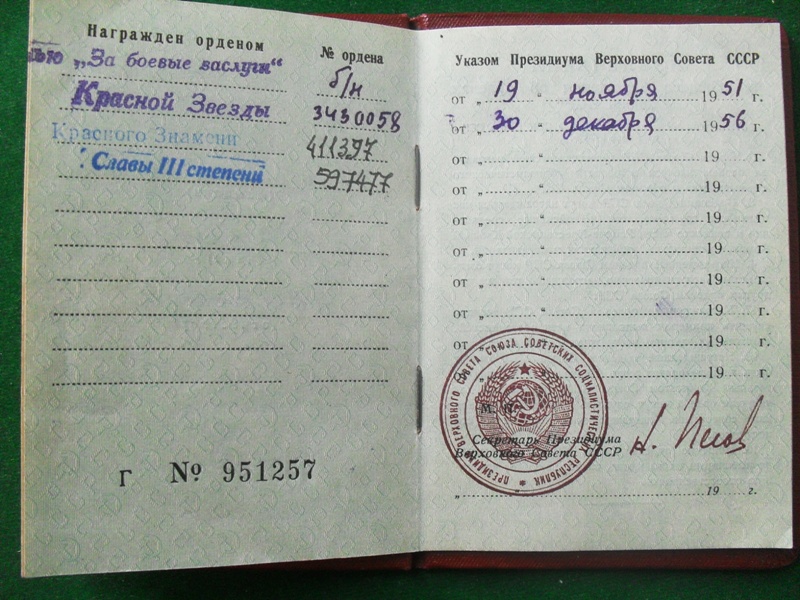 Награжден орденом
№ ордена
лью „За боевые заслуги“
б/н
Красной Звезды
3430058
Красного Знамени
411397
Славы III степени
597477
Г № 951257
Указом Президиума Верховного Совета СССР
от „ 19 “ ноября 1951 г.
от „ 30 “ декабря 1956 г.
от „ “ 19 г.
от „ “ 19 г.
от „ “ 19 г.
от „ “ 19 г.
от „ “ 19 г.
от „ “ 19 г.
от „ 19 г.
„ 19 г.
ПРЕЗИДИУМ ВЕРХОВНОГО СОВЕТА СОЮЗА СОВЕТСКИХ СОЦИАЛИСТИЧЕСКИХ РЕСПУБЛИК
М. П.
Секретарь Президиума
Верховного Совета СССР
„ “ 19 г.